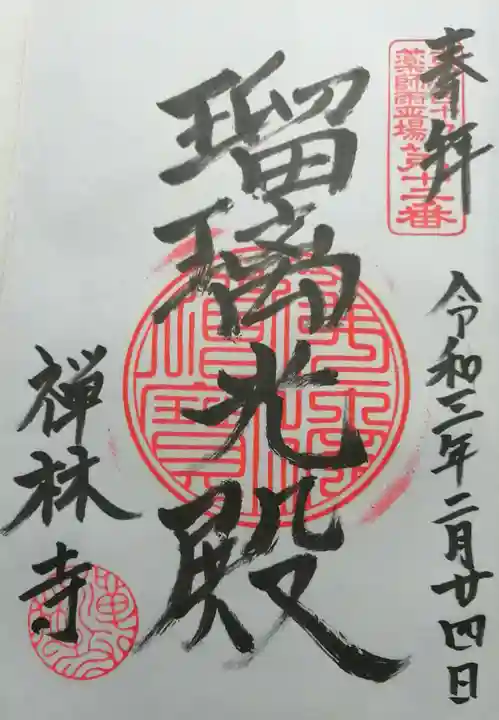 奉拝
薬師霊場
第十三番
令和三年二月廿四日
瑠璃光殿
禅林寺